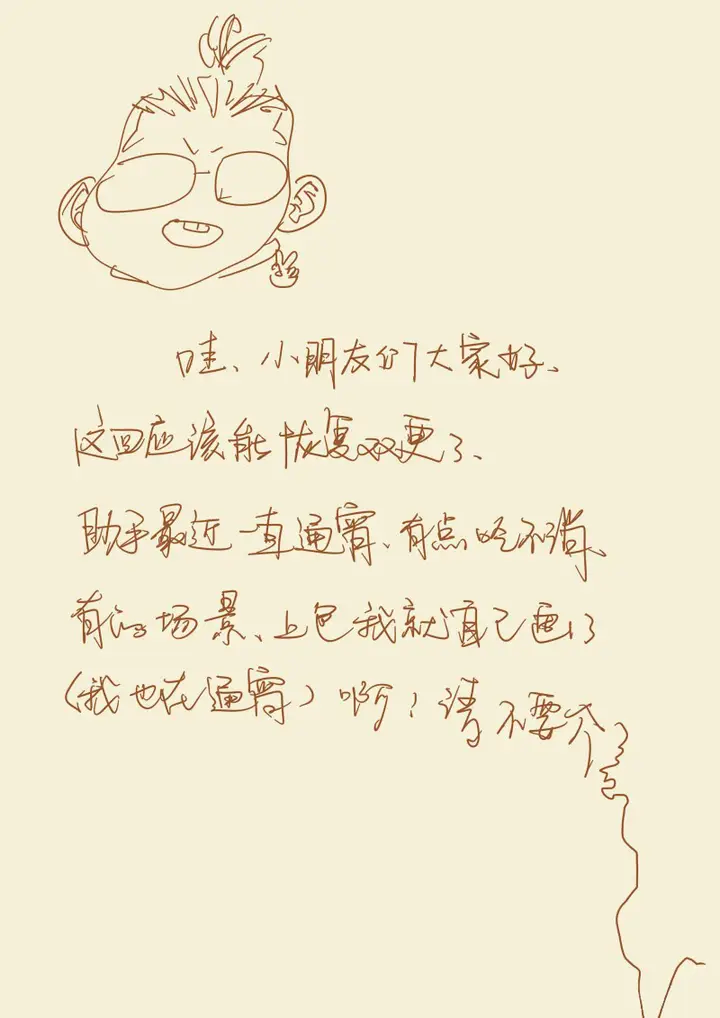 哇、小朋友们大家好、
这回应该能恢复双更了、
助手最近一直通宵、有点吃不消、
有的场景、上色我就自己画了
(我也在通宵) 啊! 请不要介